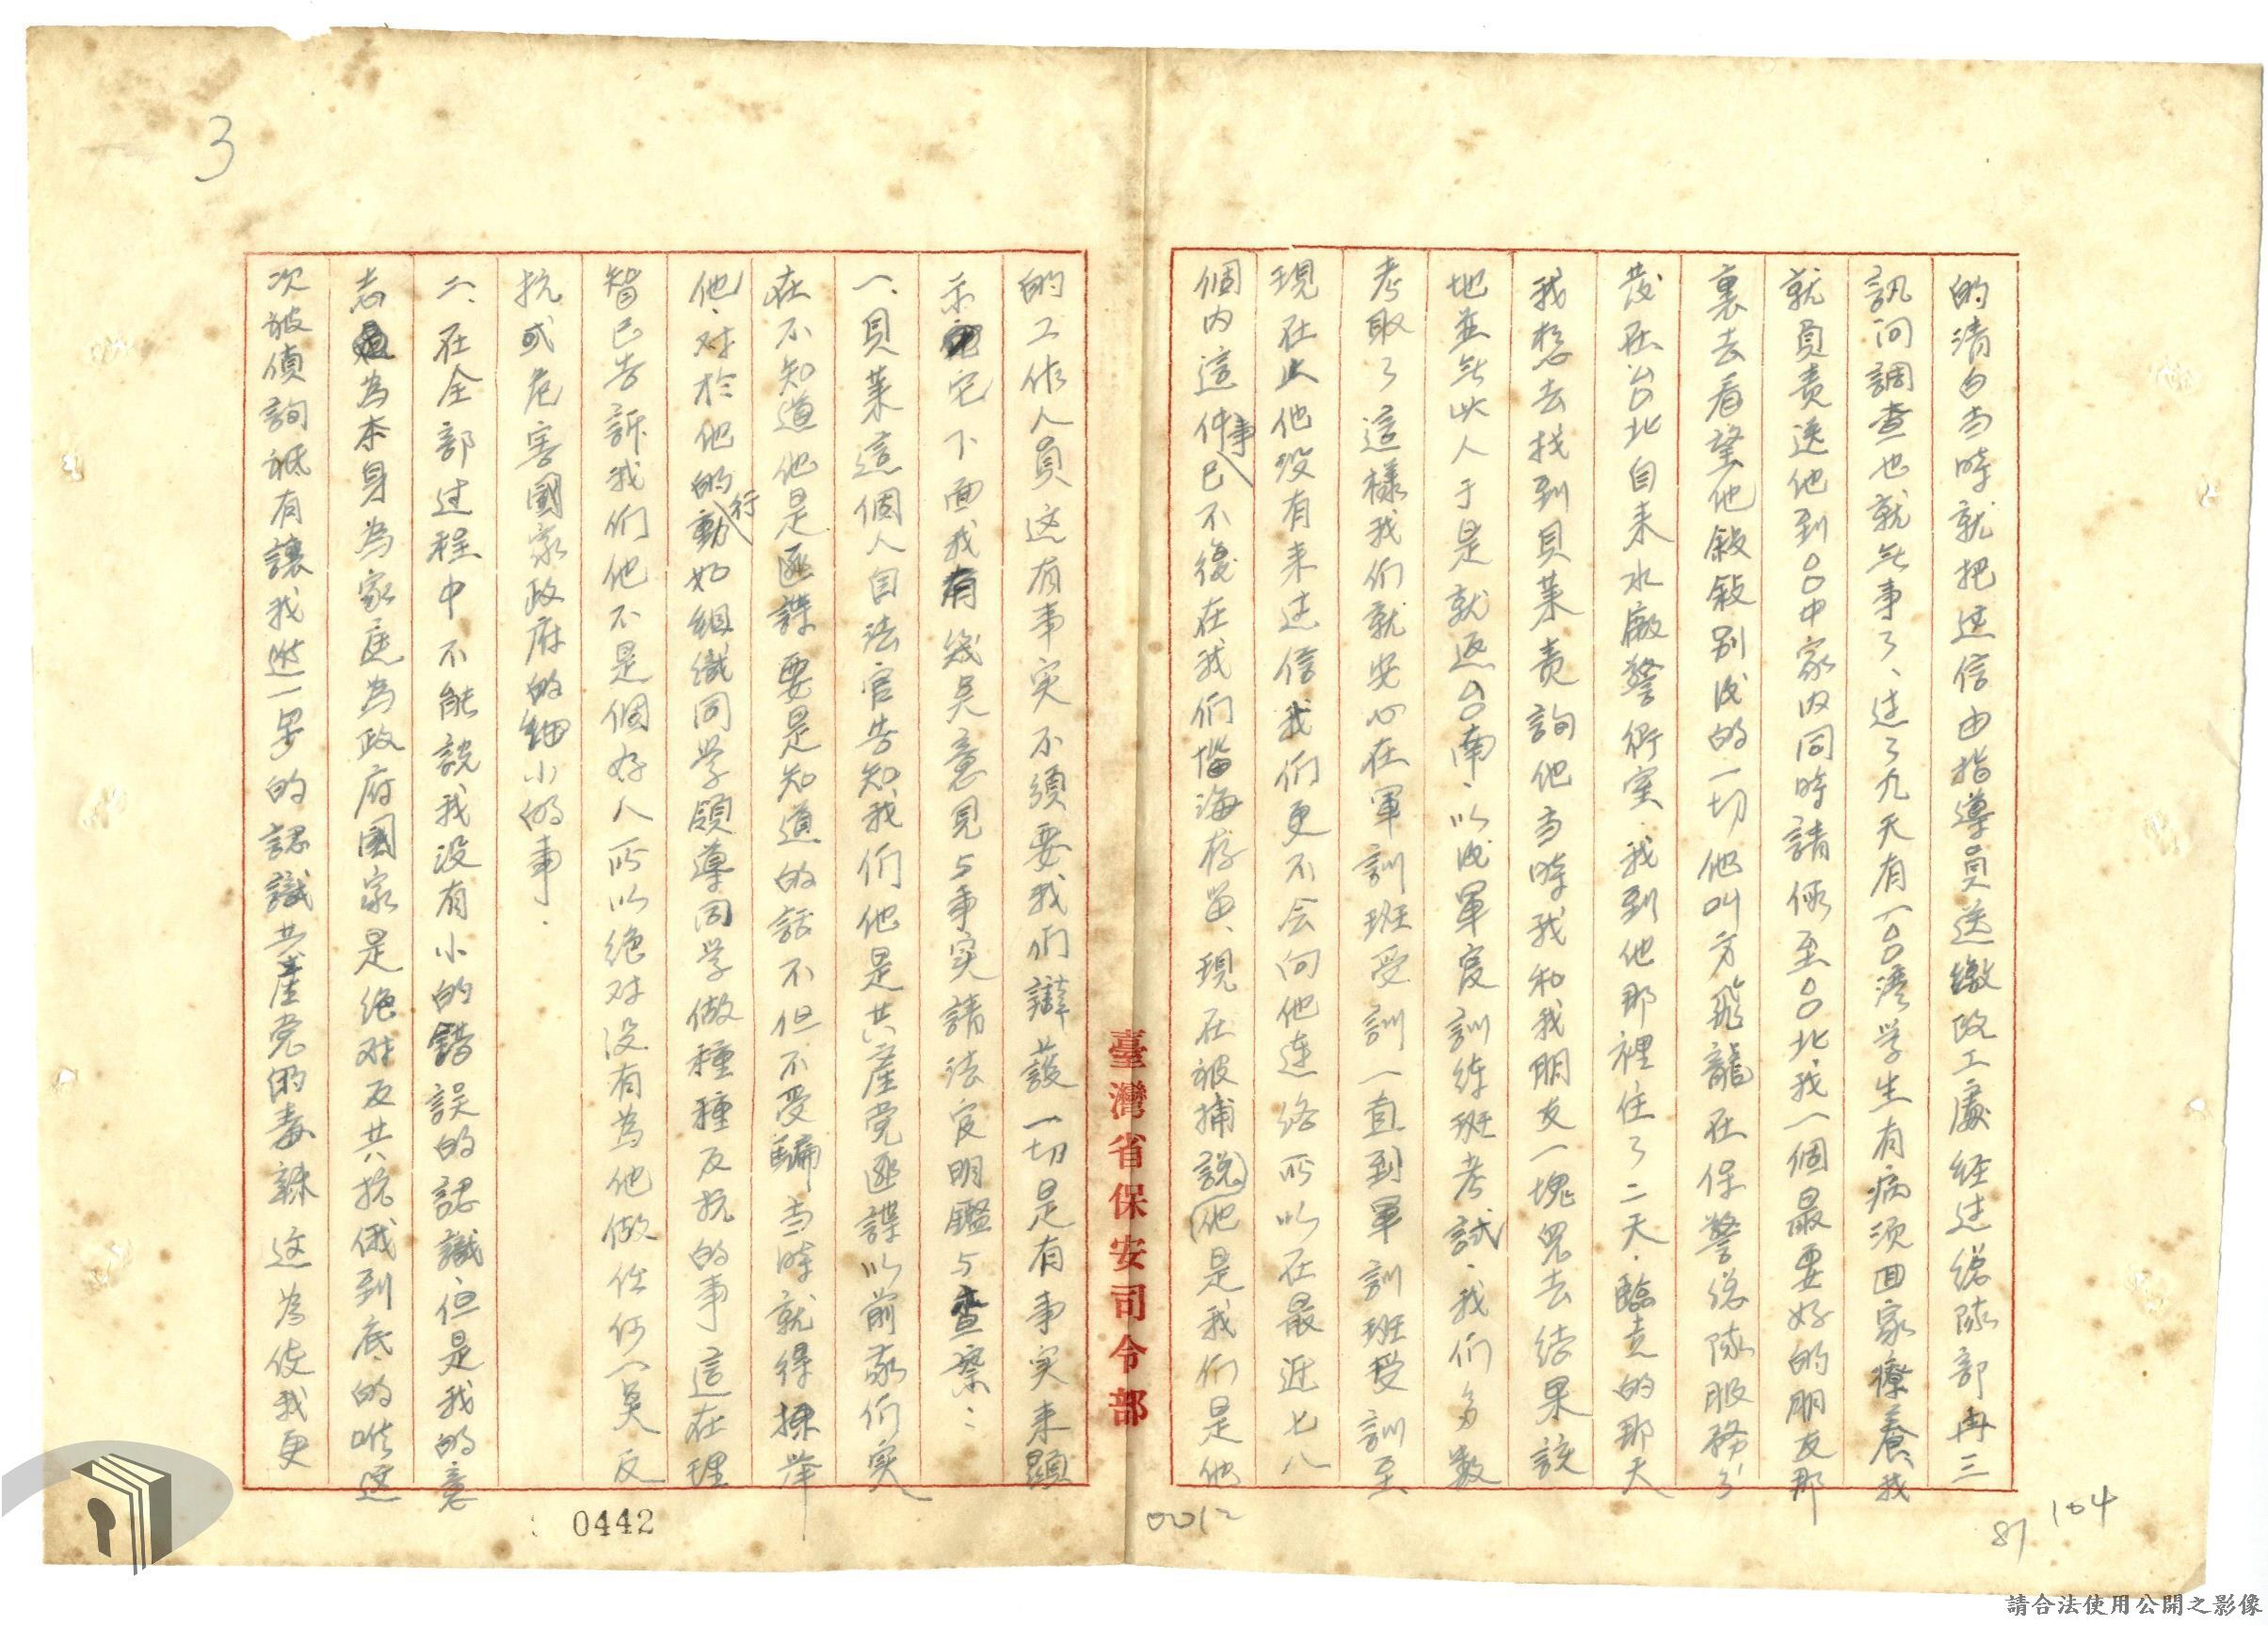 的清白当時就把這信由指導員送繳政工處経过総隊部再三
訊问調查也就無事了、过了九天有一台湾学生有病须囬家療養我
就負責送他到台中家内同時請假至台北、我一個最要好的朋友那
裏去看望他敍敍别後的一切他叫方飛龍在保警総隊服務分
發在台北自来水廠警衛室．我到他那裡住了二天．臨走的那天
我想去找到貝萊責詢他当時我和我朋友一塊皃去结果該
地並無此人于是就返台南、以後軍官訓练班考試．我们多数
考取了這樣我们就安心在軍訓班受訓一直到軍訓班受訓至
現在止他没有来过信我们更不会向他連絡所以在最近七八
個内這件事已不復在我们惱海存留、現在被捕說他是我们是他
臺灣省保安司令部
的工作人員这有事实不須要我们辯護一切是有事实来顕
示它下面我有幾㚊意見与事实請法官明鑑与查察：
一、貝萊這個人自法官告知我们他是共產党匪諜以前我们实
在不知道他是匪諜要是知道的話不但不受騙当時就得揀举
他、对於他的行動如組織同学領導同学做種種反抗的事這在理
智已告訴我们他不是個好人所以绝对没有為他做任何一㚊反
抗或危害國家政府的細小的事．
二、在全部过程中不能說我没有小的錯誤的認識．但是我的意
志為本身為家庭為政府國家是绝对反共抗俄到底的唯這
次被偵詢祗有讓我進一步的認識共產党的毒辣这為使我更
3
0442
0012
87
104
請合法使用公開之影像